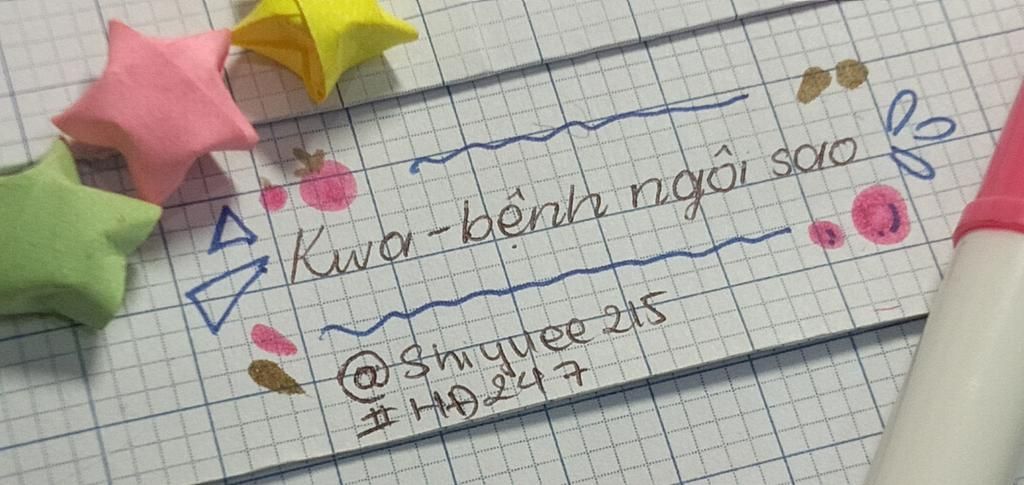 Kwa-bệnh ngôi sao
@Shiyuee215
#HĐ247